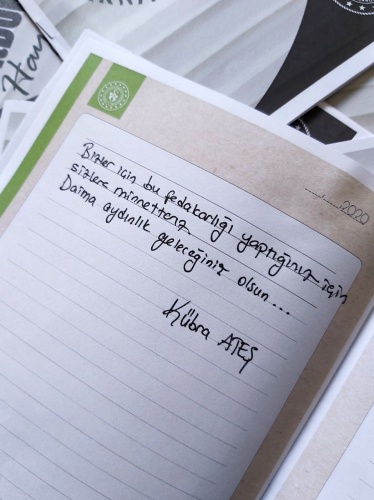 Han
....../....../2020
Bizler için bu fedakarlığı yaptığınız için
sizlere minnettarız
Daima aydınlık geleceğiniz olsun...
Kübra ATEŞ